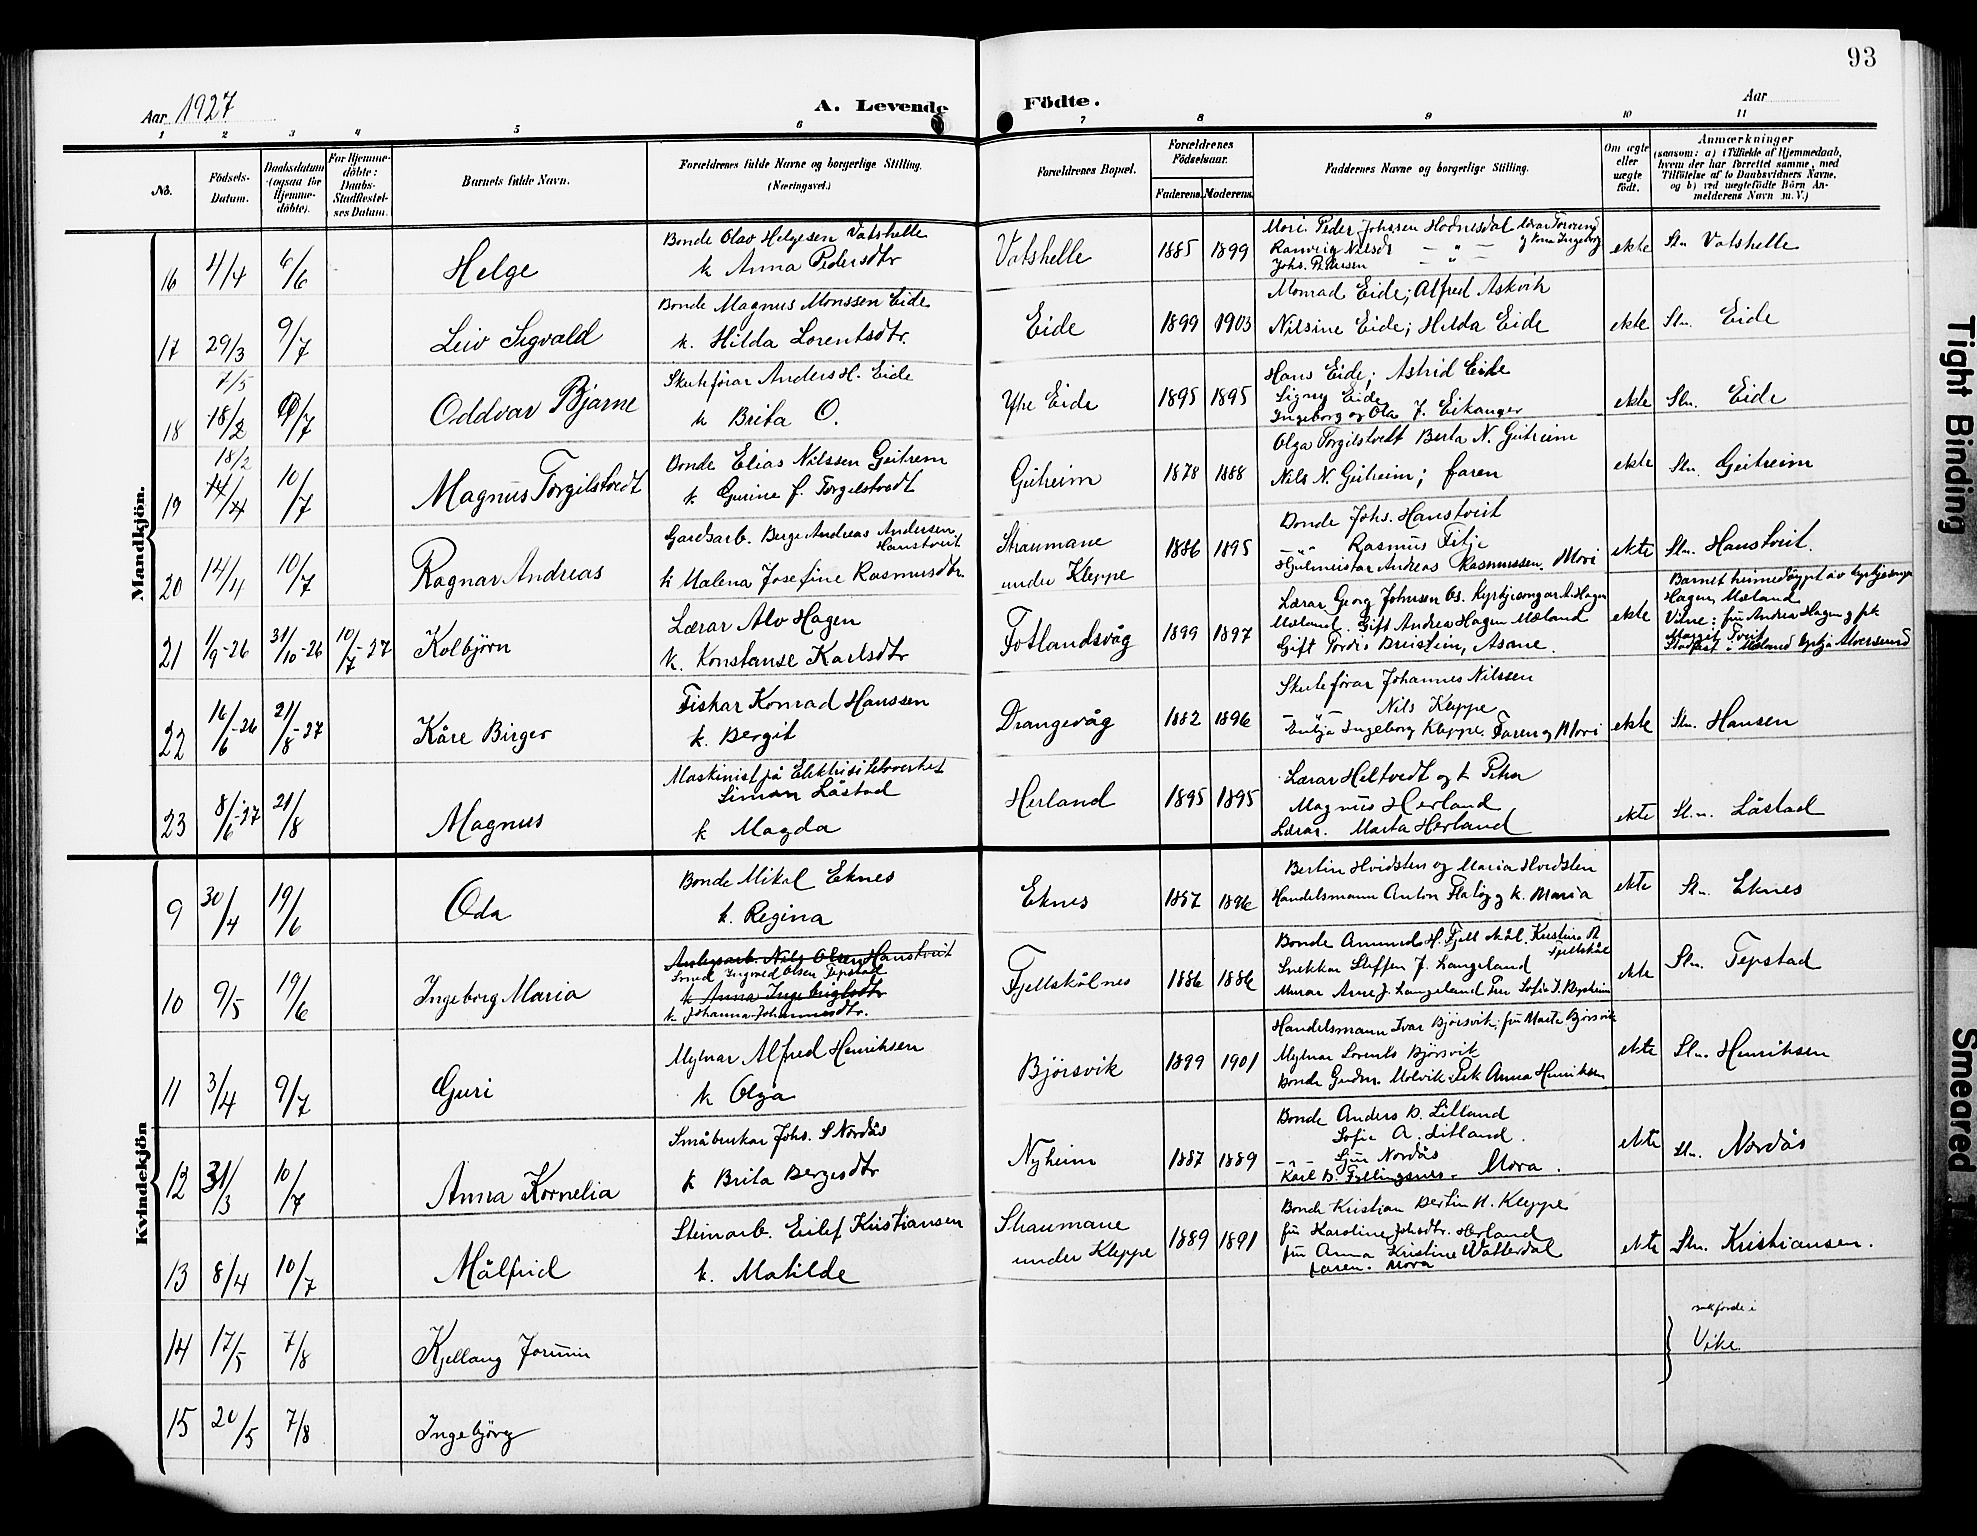 93
Aar 1927
A. Levende Födte.
Aar
1 2 3 4 5 6 7 8 9 10 11
No.
Födsels-Datum.
Daabsdatum (ogsaa for Hjemme-döbte).
For Hjemme-döbte: Daabs-Stadfæstel-ses Datum.
Barnets fulde Navn.
Forældrenes fulde Navne og borgerlige Stilling. (Næringsvei.)
Forældrenes Bopæl.
Forældrenes Födselsaar.
Faderens. Moderens.
Faddernes Navne og borgerlige Stilling.
Om ægte eller uægte födt.
Anmærkninger
(saasom: a) i Tilfælde af Hjemmedaab, hvem der har forrettet samme, med Tilföielse af to Daabsvidners Navne, og b) ved uægtefödte Börn An-melderens Navn m. V.)
Mandkjön.
16 4/4 6/6 Helge
Bonde Olav Helgesen Vatshelle
k Anna Pedersdtr
Vatshelle 1885 1899
Mori Peder Johssen Hodnesdal
Ranveig Nilsdt — " —
Johs. Pedersen — " —
ekte Stn Vatshelle
17 29/3 9/7 Leiv Sigvald
Bonde Magnus Monssen Eide
k. Hilda Lorentsdtr.
Eide 1899 1903
Monrad Eide; Alfred Askvik
Nilsine Eide; Hilda Eide
ekte Stn. Eide
18 7/5 18/2 9/7 Oddvar Bjarne
Skuteförar Anders H. Eide
k Brita O.
Ytre Eide 1895 1895
Hans Eide; Astrid Eide
Signy Eide
Ingeborg og Ola J. Eikanger
ekte Stn. Eide
19 18/2 14/4 10/7 Magnus Torgilstvedt
Bonde Elias Nilssen Geitreim
k Gurine f. Torgelstvedt
Geitreim 1878 1888
Olga Torgilstvedt Berta N. Geitreim
Nils N. Geitreim; faren
ekte Stn Geitreim
20 14/4 10/7 Ragnar Andreas
Gardsarb. Berge Andreas Andersen Hanstveit
k Malena Josefine Rasmusdtr.
Straumane under Kleppe 1886 1895
Bonde Johs. Hanstveit
— " — Rasmus Tilje
Hjulmeistar Andreas Rasmussen. Mori
ekte Stn. Hanstveit.
21 1/9-26 31/10-26 10/7-27 Kolbjörn
Lærar Alv Hagen
k. Konstanse Karlsdtr
Fotlandsvåg 1899 1897
Lærar Georg Johnsen Os. Kyrkjesongar A. Hagen
Mæland. Gift Andrea Hagen Mæland
Gift Tordis Brustein, Asane.
ekte
Barnet heimedöypt av kyrkjesongar
Hagen, Mæland
Vitne: fru Andrea Hagen og frk
Margit Tveit
Stadfest i Mæland kyrkja Alversund
22 16/6-26 21/8-27 Kåre Birger
Fiskar Konrad Hanssen
k. Bergit
Drangevåg 1882 1896
Skuteförar Johannes Nilssen
— " — Nils Kleppe
Enkja Ingeborg Kleppe. Faren og Mori
ekte Stn. Hansen
23 8/6-27 21/8 Magnus
Maskinist på Elektrisitetsverket
Simon Låstad
k Magda
Herland 1895 1895
Lærar Heltvedt og k Petra
Magnus Herland
Lærar. Marta Herland
ekte St.n. Låstad
Kvindekjön
9 30/4 19/6 Oda
Bonde Mikal Eknes
k. Regina
Eknes 1887 1896
Bertin Hvidsten og Maria Hvidsten
Handelsmann Anton Flatöy og k. Maria
ekte St.n. Eknes
10 9/5 19/6 Ingeborg Maria
Anlegsarb. Nils Olsen Hanstveit
Smed Ingvald Olsen Tepstad
k Anna Ingebrigtsdtr
k Johanna Johannesdtr.
Fjellskålnes 1886 1886
Bonde Amund H. Fjellskål. Kristina A Fjellskål
Snekkar Steffen J. Langeland
Murar Arne J. Langeland
ekte Stn. Tepstad
11 3/4 9/7 Guri
Mylnar Alfred Henriksen
k Olga
Björsvik 1899 1901
Handelsmann Ivar Björsvik, fru Marta Björsvik
Mylnar Lorents Björsvik
Bonde Gudm. Molvik. Frk Anna Henriksen
ekte Stn. Henriksen
12 31/3 10/7 Anna Kornelia
Småbrukar Johs. S Nordås
k Brita Bergesdtr
Nyheim 1887 1889
Bonde Anders B. Litland
Sofie A. Litland.
— " — Sjur Nordås
Karl B. Fyllingsnes. Mora.
ekte Stn. Nordås
13 8/4 10/7 Målfrid
Steinarb. Eilef Kristiansen
k. Matilde
Straumane under Kleppe 1889 1891
Bonde Kristian Bertin N. Kleppe
fru Karoline Johsdtr. Herland
fru Anna Kristine Watterdal
faren. Mora
ekte Stn. Kristiansen.
14 17/5 7/8 Kjellaug Jorunn
innförde i
Vike
15 20/5 7/8 Ingebjörg
Tight Binding
Smeared